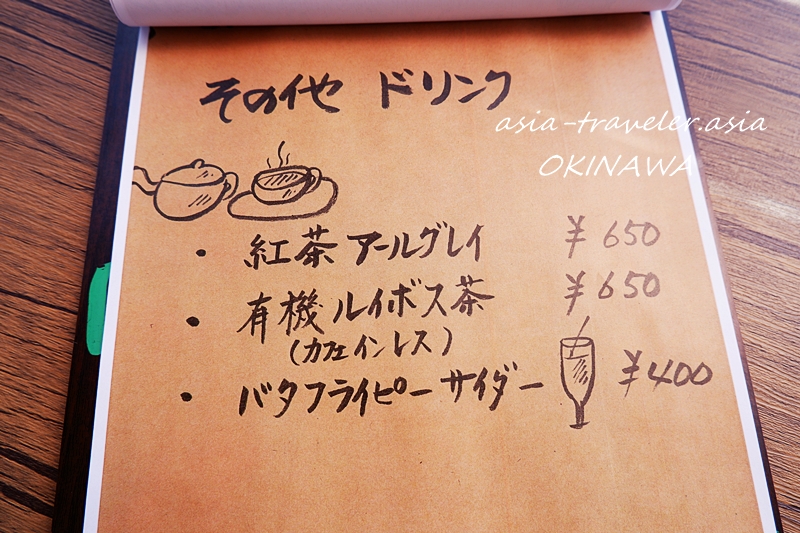 その他 ドリンク
asia-traveler.asia
OKINAWA
・紅茶 アールグレイ ¥650
・有機ルイボス茶 ¥650
(カフェインレス)
・バタフライピーサイダー ¥400